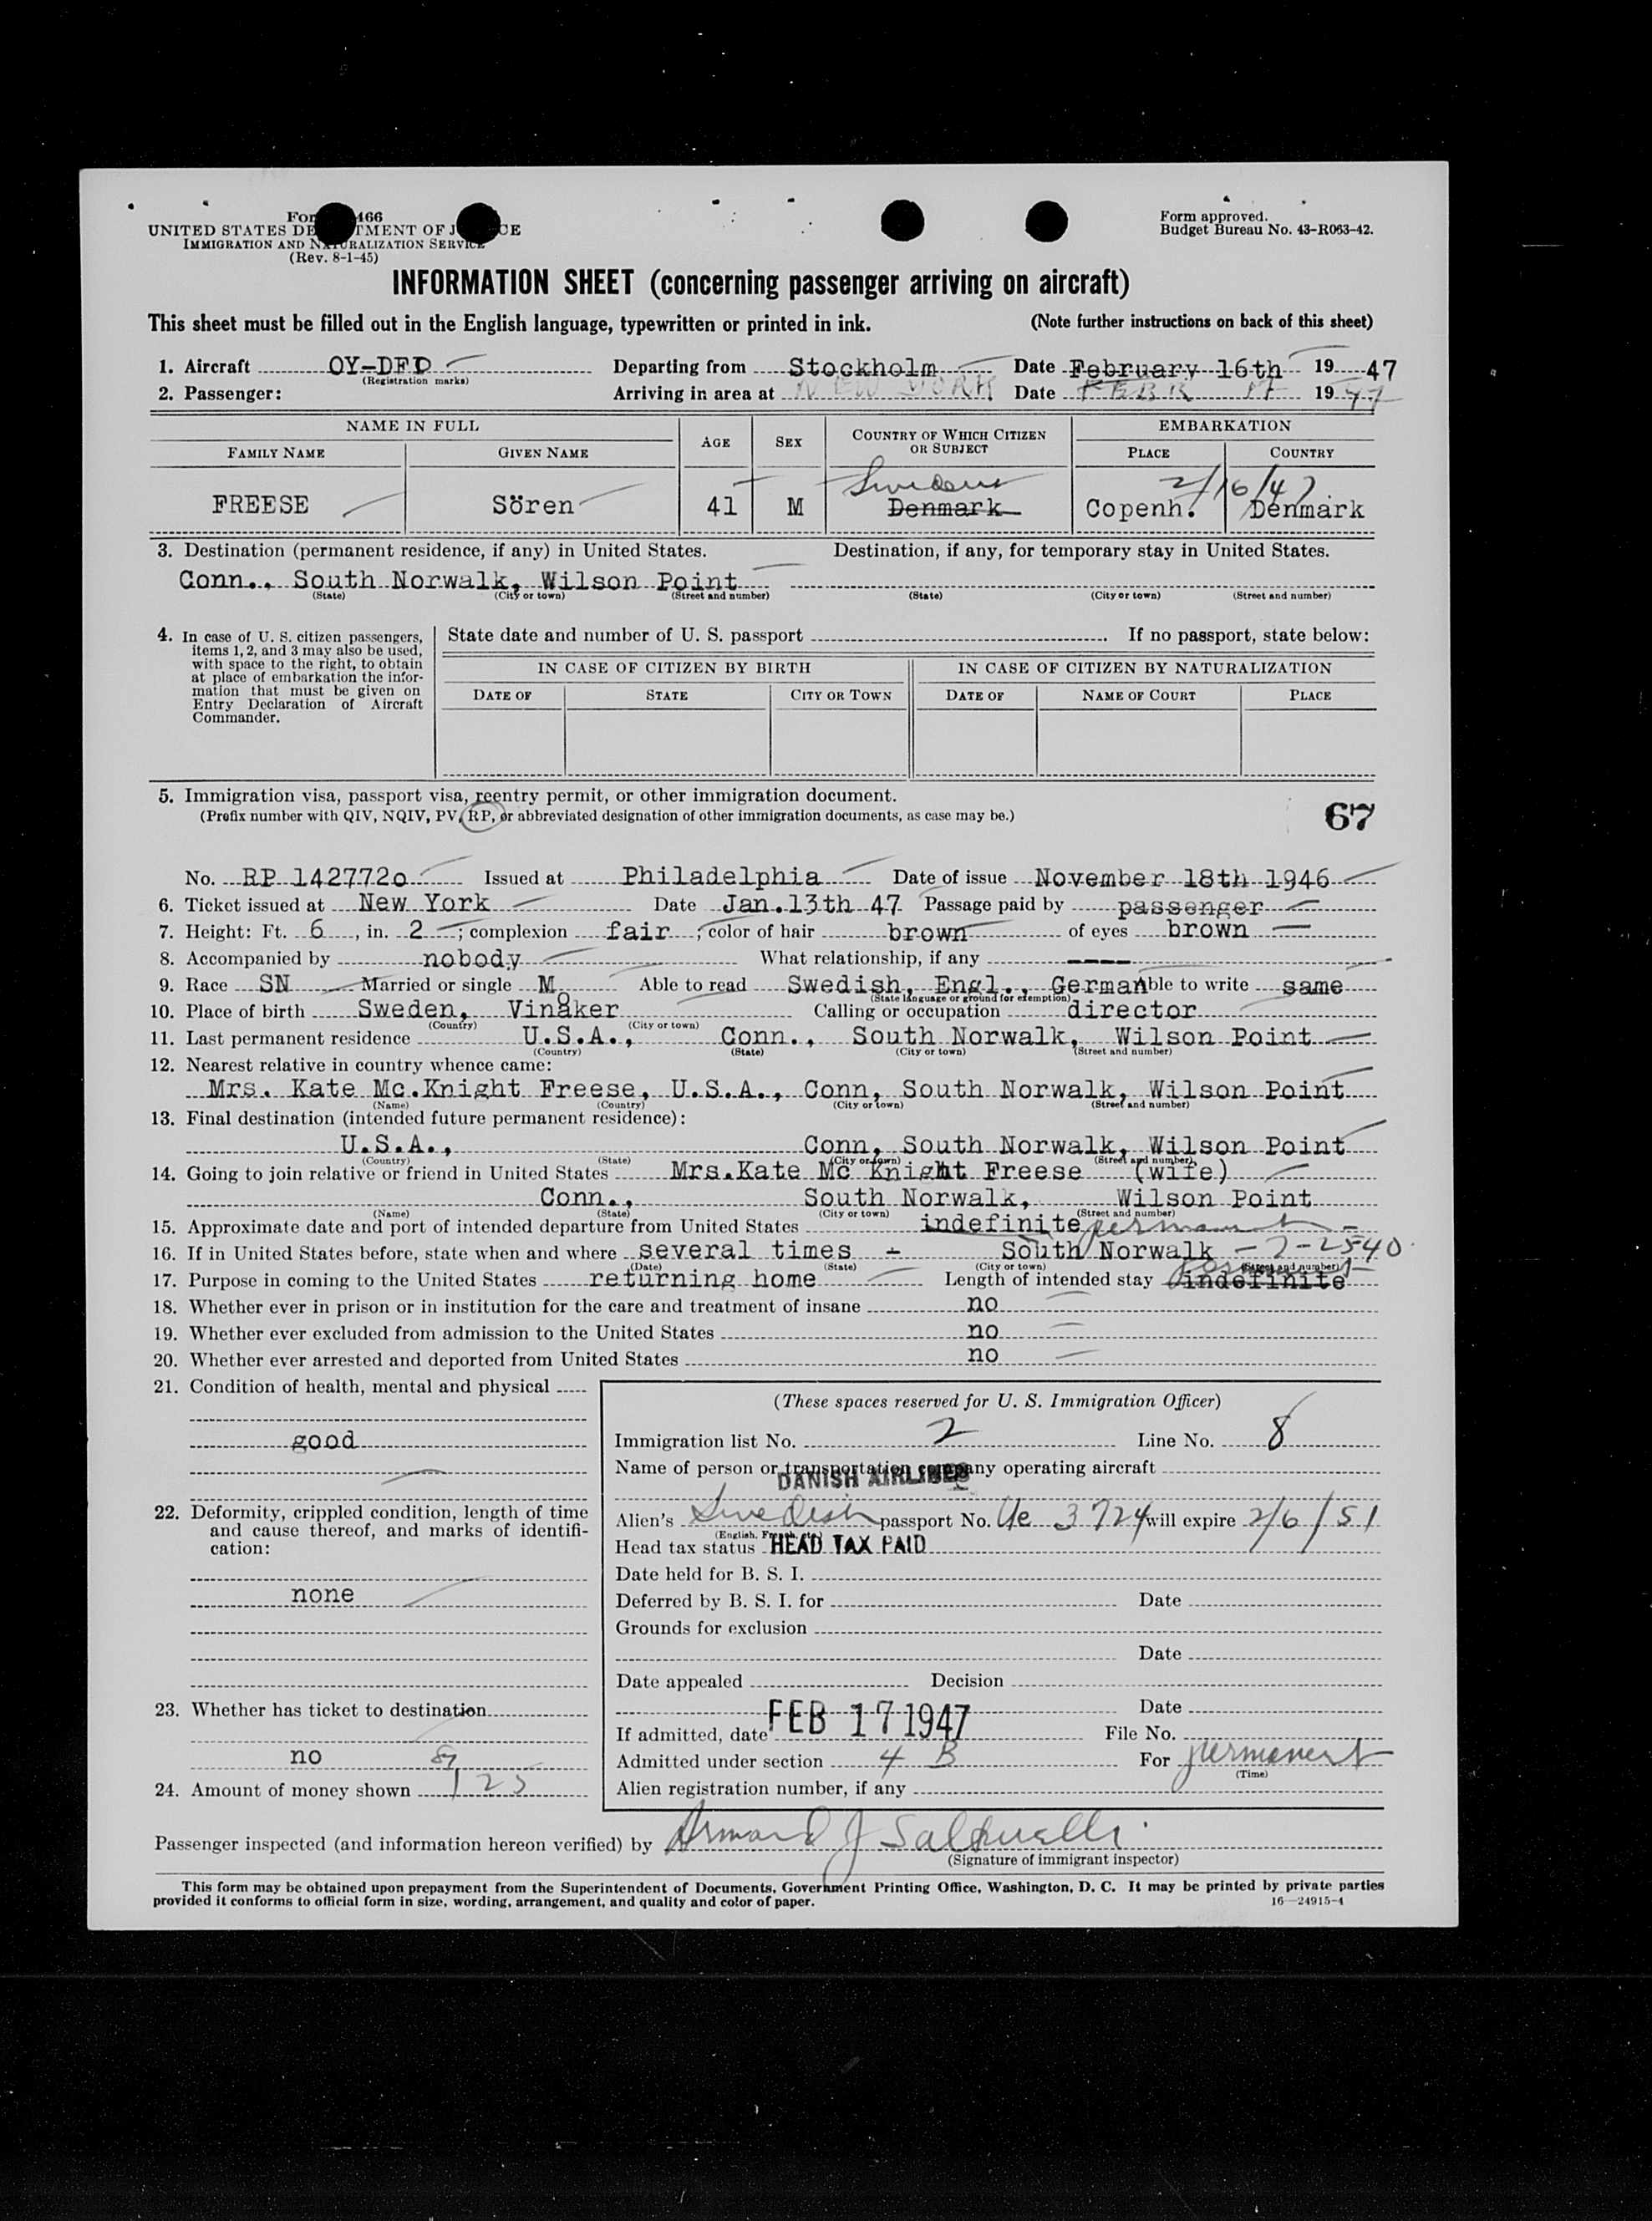 Form 466
UNITED STATES DEPARTMENT OF JUSTICE
IMMIGRATION AND NATURALIZATION SERVICE
(Rev. 8-1-45)
Form approved.
Budget Bureau No. 43-R063-42.
INFORMATION SHEET (concerning passenger arriving on aircraft)
This sheet must be filled out in the English language, typewritten or printed in ink. (Note further instructions on back of this sheet)
1. Aircraft OY-DFD Departing from Stockholm Date February 16th 19 47
(Registration marks)
2. Passenger: Arriving in area at NEW YORK Date FEBR 17 19 47
NAME IN FULL AGE SEX COUNTRY OF WHICH CITIZEN OR SUBJECT EMBARKATION
FAMILY NAME GIVEN NAME PLACE COUNTRY
Sweden 2/16/47
FREESE Sören 41 M Denmark Copenh. Denmark
3. Destination (permanent residence, if any) in United States. Destination, if any, for temporary stay in United States.
Conn., South Norwalk, Wilson Point
(State) (City or town) (Street and number) (State) (City or town) (Street and number)
4. In case of U. S. citizen passengers, items 1, 2, and 3 may also be used, with space to the right, to obtain at place of embarkation the information that must be given on Entry Declaration of Aircraft Commander.
State date and number of U. S. passport If no passport, state below:
IN CASE OF CITIZEN BY BIRTH IN CASE OF CITIZEN BY NATURALIZATION
DATE OF STATE CITY OR TOWN DATE OF NAME OF COURT PLACE
5. Immigration visa, passport visa, reentry permit, or other immigration document.
(Prefix number with QIV, NQIV, PV, RP, or abbreviated designation of other immigration documents, as case may be.)
67
No. RP 142772o Issued at Philadelphia Date of issue November 18th 1946
6. Ticket issued at New York Date Jan.13th 47 Passage paid by passenger
7. Height: Ft. 6, in. 2; complexion fair; color of hair brown of eyes brown
8. Accompanied by nobody What relationship, if any ----
9. Race SN Married or single M Able to read Swedish, Engl., German Able to write same
(State language or ground for exemption)
10. Place of birth Sweden, Vinåker Calling or occupation director
(Country) (City or town)
11. Last permanent residence U.S.A., Conn., South Norwalk, Wilson Point
(Country) (State) (City or town) (Street and number)
12. Nearest relative in country whence came:
Mrs. Kate Mc.Knight Freese, U.S.A., Conn, South Norwalk, Wilson Point
(Name) (Country) (City or town) (Street and number)
13. Final destination (intended future permanent residence):
U.S.A., Conn, South Norwalk, Wilson Point
(Country) (State) (City or town) (Street and number)
14. Going to join relative or friend in United States Mrs.Kate Mc Knight Freese (wife)
Conn., South Norwalk, Wilson Point
(Name) (State) (City or town) (Street and number)
15. Approximate date and port of intended departure from United States indefinite permanent
16. If in United States before, state when and where several times - South Norwalk - 7-2540
(Date) (State) (City or town) (Street and number)
17. Purpose in coming to the United States returning home Length of intended stay indefinite
18. Whether ever in prison or in institution for the care and treatment of insane no
19. Whether ever excluded from admission to the United States no
20. Whether ever arrested and deported from United States no
21. Condition of health, mental and physical
good
22. Deformity, crippled condition, length of time and cause thereof, and marks of identification:
none
23. Whether has ticket to destination
no
24. Amount of money shown 125
(These spaces reserved for U. S. Immigration Officer)
Immigration list No. 2 Line No. 8
Name of person or transportation company operating aircraft
DANISH AIRLINES
Alien's Swedish passport No. Ue 3724 will expire 2/6/51
(English, French, etc.)
Head tax status HEAD TAX PAID
Date held for B. S. I.
Deferred by B. S. I. for Date
Grounds for exclusion
Date
Date appealed Decision
Date
If admitted, date FEB 17 1947 File No.
Admitted under section 4 B For permanent
(Time)
Alien registration number, if any
Passenger inspected (and information hereon verified) by Armand J
(Signature of immigrant inspector)
This form may be obtained upon prepayment from the Superintendent of Documents, Government Printing Office, Washington, D. C. It may be printed by private parties
provided it conforms to official form in size, wording, arrangement, and quality and color of paper. 16—24915-4